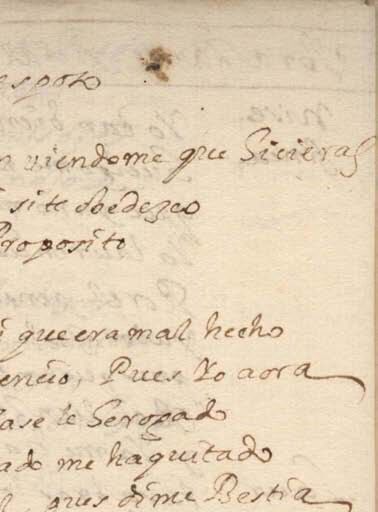 esposo
viendome que Siciera
si te obedezco
Proposito
que era mal hecho
encio, Pues Yo aora
ase le Seropado
ado me ha quitado
pues dime Bestia